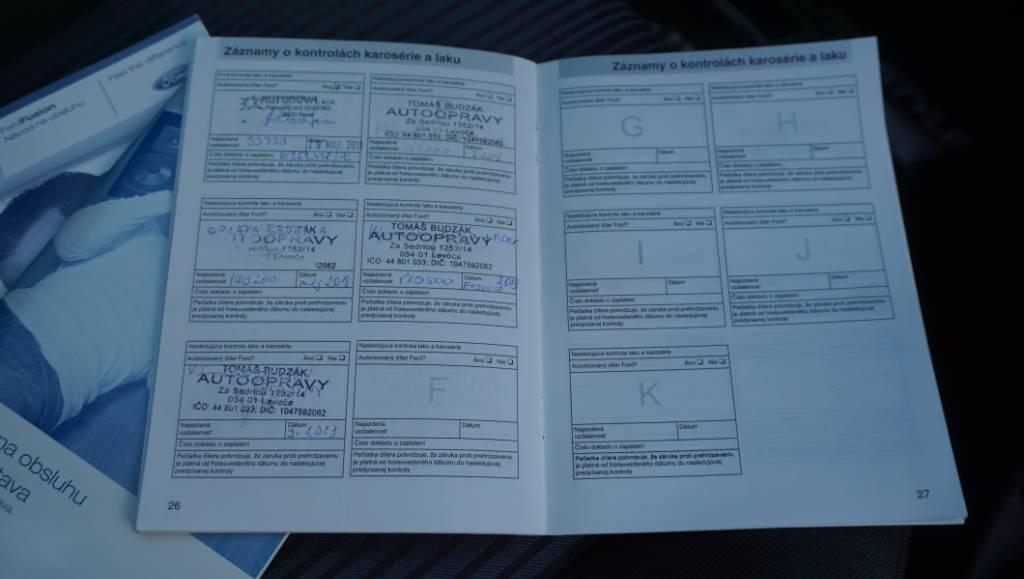 Feel the difference
Ford
FordFusion
Návod na obsluhu
na obsluhu
tava
Záznamy o kontrolách karosérie a laku
Prvá kontrola laku a karosérie
Autorizovaný díler Ford? Áno Nie
AUTONOVA s.r.o.
Najazdená
vzdialenosť Dátum
Číslo dokladu o zaplatení
Pečiatka dílera potvrdzuje, že záruka proti prehrdzaveniu
je platná od horeuvedeného dátumu do nasledujúcej
predpísanej kontroly
Nasledujúca kontrola laku a karosérie
Autorizovaný díler Ford? Áno Nie
TOMÁŠ BUDZÁK
AUTOOPRAVY
Za Sedriou 1252/14
054 01 Levoča
IČO: 44 801 033; DIČ: 1047592062
Najazdená
vzdialenosť Dátum
Číslo dokladu o zaplatení
Pečiatka dílera potvrdzuje, že záruka proti prehrdzaveniu
je platná od horeuvedeného dátumu do nasledujúcej
predpísanej kontroly
Nasledujúca kontrola laku a karosérie
Autorizovaný díler Ford? Áno Nie
AUTOOPRAVY
1252/14
Levoča
Najazdená
vzdialenosť 170200 Dátum 2018
Číslo dokladu o zaplatení
Pečiatka dílera potvrdzuje, že záruka proti prehrdzaveniu
je platná od horeuvedeného dátumu do nasledujúcej
predpísanej kontroly
Nasledujúca kontrola laku a karosérie
Autorizovaný díler Ford? Áno Nie
TOMÁŠ BUDZÁK
AUTOOPRAVY
Za Sedriou 1252/14
054 01 Levoča
IČO: 44 801 033; DIČ: 1047592062
Najazdená
vzdialenosť 170500 Dátum 2019
Číslo dokladu o zaplatení
Pečiatka dílera potvrdzuje, že záruka proti prehrdzaveniu
je platná od horeuvedeného dátumu do nasledujúcej
predpísanej kontroly
Nasledujúca kontrola laku a karosérie
Autorizovaný díler Ford? Áno Nie
TOMÁŠ BUDZÁK
AUTOOPRAVY
Za Sedriou 1252/14
054 01 Levoča
IČO: 44 801 033; DIČ: 1047592062
Najazdená
vzdialenosť Dátum
Číslo dokladu o zaplatení
Pečiatka dílera potvrdzuje, že záruka proti prehrdzaveniu
je platná od horeuvedeného dátumu do nasledujúcej
predpísanej kontroly
Nasledujúca kontrola laku a karosérie
Autorizovaný díler Ford? Áno Nie
F
Najazdená
vzdialenosť Dátum
Číslo dokladu o zaplatení
Pečiatka dílera potvrdzuje, že záruka proti prehrdzaveniu
je platná od horeuvedeného dátumu do nasledujúcej
predpísanej kontroly
26
Záznamy o kontrolách karosérie a laku
Nasledujúca kontrola laku a karosérie
Autorizovaný díler Ford? Áno Nie
G
Najazdená
vzdialenosť Dátum
Číslo dokladu o zaplatení
Pečiatka dílera potvrdzuje, že záruka proti prehrdzaveniu
je platná od horeuvedeného dátumu do nasledujúcej
predpísanej kontroly
Nasledujúca kontrola laku a karosérie
Autorizovaný díler Ford? Áno Nie
H
Najazdená
vzdialenosť Dátum
Číslo dokladu o zaplatení
Pečiatka dílera potvrdzuje, že záruka proti prehrdzaveniu
je platná od horeuvedeného dátumu do nasledujúcej
predpísanej kontroly
Nasledujúca kontrola laku a karosérie
Autorizovaný díler Ford? Áno Nie
I
Najazdená
vzdialenosť Dátum
Číslo dokladu o zaplatení
Pečiatka dílera potvrdzuje, že záruka proti prehrdzaveniu
je platná od horeuvedeného dátumu do nasledujúcej
predpísanej kontroly
Nasledujúca kontrola laku a karosérie
Autorizovaný díler Ford? Áno Nie
J
Najazdená
vzdialenosť Dátum
Číslo dokladu o zaplatení
Pečiatka dílera potvrdzuje, že záruka proti prehrdzaveniu
je platná od horeuvedeného dátumu do nasledujúcej
predpísanej kontroly
Nasledujúca kontrola laku a karosérie
Autorizovaný díler Ford? Áno Nie
K
Najazdená
vzdialenosť Dátum
Číslo dokladu o zaplatení
Pečiatka dílera potvrdzuje, že záruka proti prehrdzaveniu
je platná od horeuvedeného dátumu do nasledujúcej
predpísanej kontroly
27